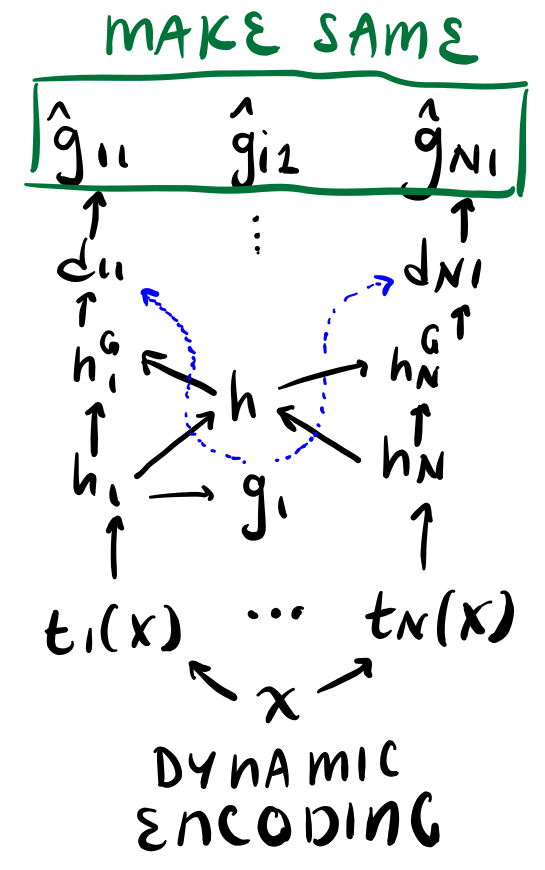 MAKE SAME
ĝ11 ĝi1 ĝN1
⋮
d11 dN1
h1^G hN^G
h
h1 hN
g1
t1(x) ... tN(x)
x
DYNAMIC
ENCODING